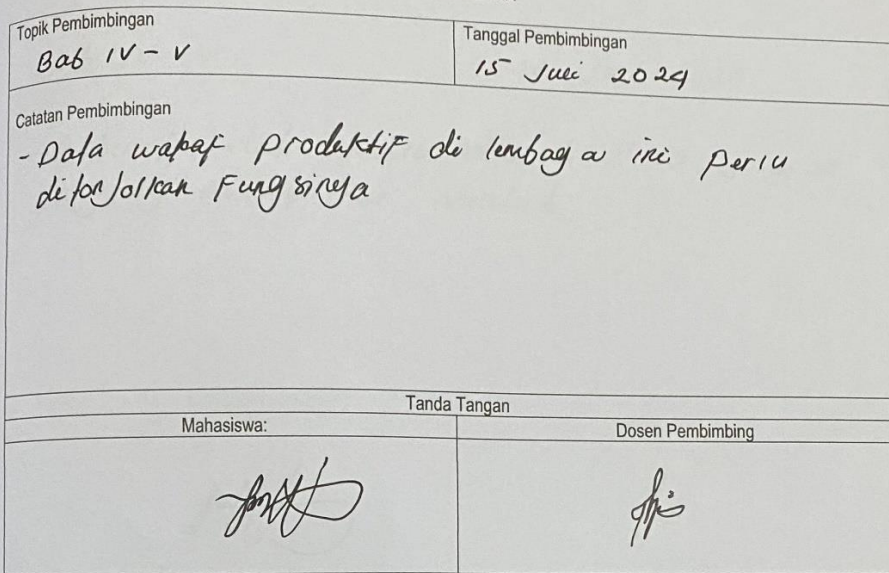 Topik Pembimbingan
Bab IV - V
Tanggal Pembimbingan
15 Juli 2024
Catatan Pembimbingan
- Data wakaf produktif di lembaga ini perlu
ditonjolkan Fungsinya
Tanda Tangan
Mahasiswa:
Dosen Pembimbing